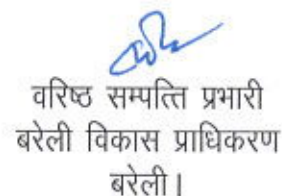 वरिष्ठ सम्पत्ति प्रभारी
बरेली विकास प्राधिकरण
बरेली।